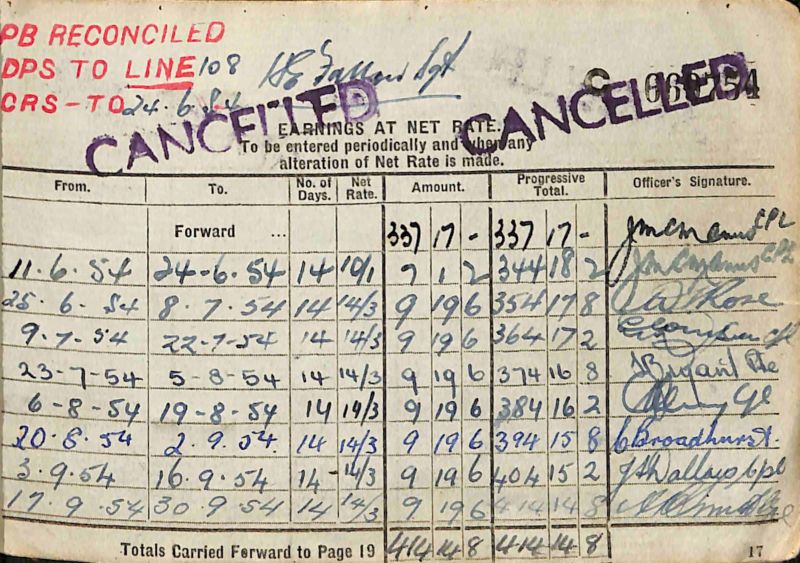 PB RECONCILED
DPS TO LINE 108
CRS - TO 24.6.54
Sgt
C 669254
CANCELLED CANCELLED
EARNINGS AT NET RATE.
To be entered periodically and when any
alteration of Net Rate is made.
From. To. No. of Days. Net Rate. Amount. Progressive Total. Officer's Signature.
Forward ... 337 17 - 337 17 - CPL
11.6.54 24-6-54 14 10/1 7 1 2 344 18 2 CPL
25.6.54 8.7.54 14 14/3 9 19 6 354 17 8 Rose
9.7.54 22-7-54 14 14/3 9 19 6 364 17 2
23-7-54 5-8-54 14 14/3 9 19 6 374 16 8 Bryant Pte
6-8-54 19-8-54 14 14/3 9 19 6 384 16 2 Cpl
20.8.54 2.9.54. 14 14/3 9 19 6 394 15 8 C Broadhurst.
3.9.54 16.9.54 14 14/3 9 19 6 404 15 2 Cpl
17.9.54 30.9.54 14 14/3 9 19 6 414 14 8
Totals Carried Forward to Page 19 414 14 8 414 14 8
17